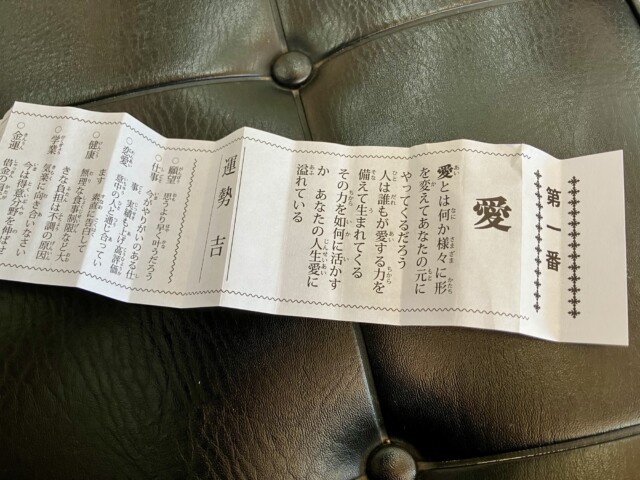 第一番
愛
愛とは何か様々に形
を変えてあなたの元に
やってくるだろう
人は誰もが愛する力を
備えて生まれてくる
その力を如何に活かす
か あなたの人生愛に
溢れている
運勢 吉
○願望 思うより早く叶うだろう
○仕事 今がやりがいのある仕
事 実績もあげ高評価
○恋愛 意中の人と通じ合ってい
ます 素直に告白して
○健康 無理な食事制限など大
きな負担は不調の原因
○学業 気楽に向き合いなさい
今は得意分野を伸ばせ
○金運 借金の